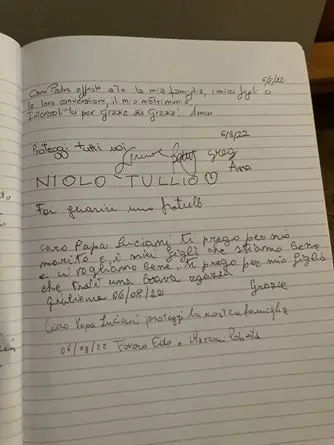 5/8/22
Caro Padre affido a Te la mia famiglia, i miei figli e
la loro conversione, il mio matrimonio.
Intercedi tu per grazie su grazie! Amen
6/8/22
Proteggi tutti noi
Greg
Anna
NIOLO TULLIO ♡
Fai guarire mio fratello
Caro Papa Luciani, ti prego per mio
marito e i miei figli che stiamo bene
e ci vogliamo bene. Ti prego per mia figlia
che trovi una brava ragazza
Giuliana 06/08/22 Grazie
Caro Papa Luciani proteggi la nostra famiglia
06/08/22 Favaro Edo e Roberta